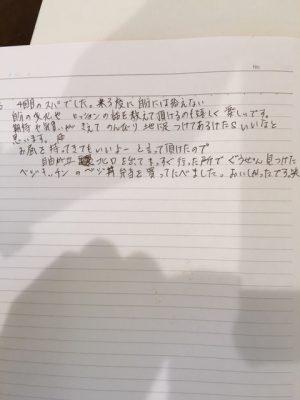 4回目のスパでした。来る度に自分には見えない
自分の変化や セッションの話を教えて頂けるのも嬉しく楽しいです。
期待や気負いがきえて のんびり 地に足つけてあるけたらいいなと
思います。
お昼を持ってきてもいいよー と言って頂けたので
自由が丘 北口を出てまっすぐ行った所で ぐうぜん見つけた
ベジキッチンのベジ丼弁当を買ってたべました。おいしかったです。